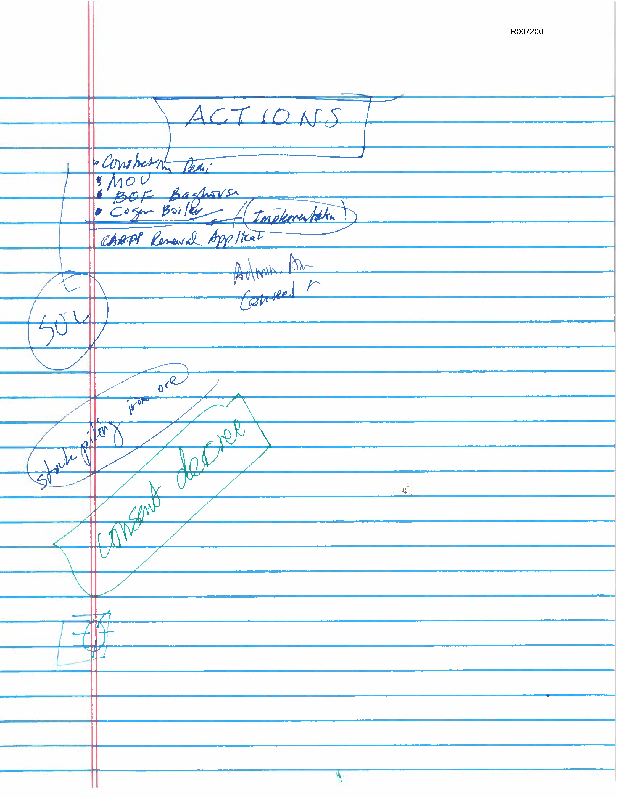 R007200
ACTIONS
• Construction Permi
• MOU
• BOF Baghouse
• Cogen Boiler
Implementation!
CAAPP Renewal Applicat
Admin. Am
Consent
stock piling iron ore
consent decree